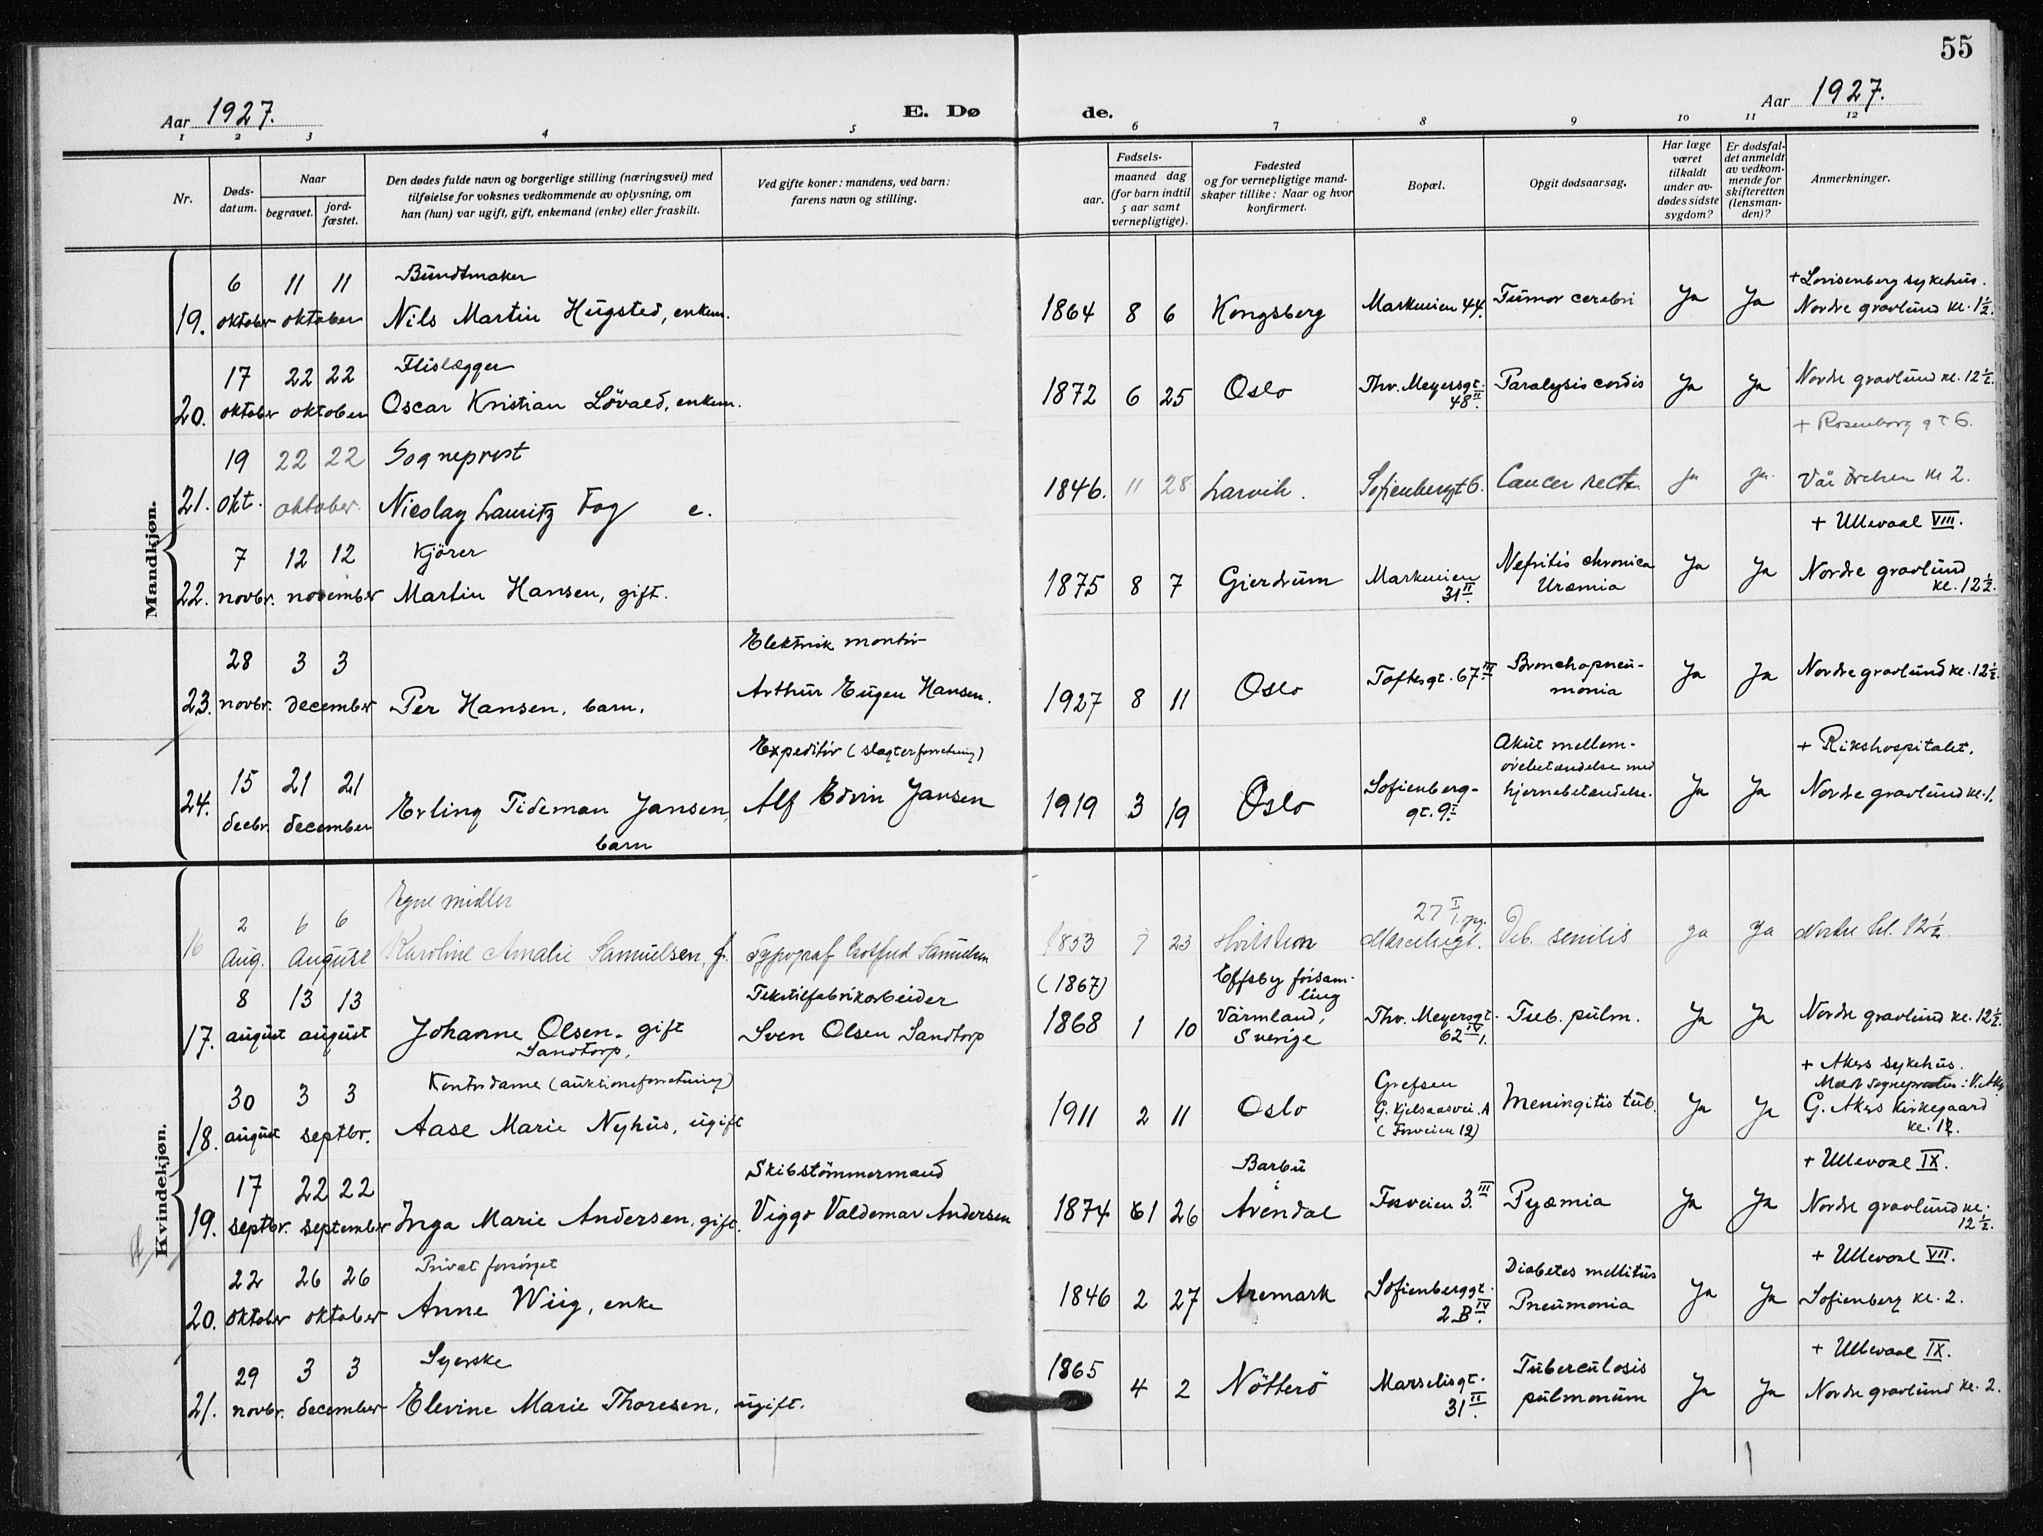 55
Aar 1927. E. Dø de. Aar 1927.
1 2 3 4 5 6 7 8 9 10 11 12
Nr.
Døds-
datum.
Naar
begravet.
jord-
fæstet.
Den dødes fulde navn og borgerlige stilling (næringsvei) med
tilføielse for voksnes vedkommende av oplysning, om
han (hun) var ugift, gift, enkemand (enke) eller fraskilt.
Ved gifte koner: mandens, ved barn:
farens navn og stilling.
Fødsels-
aar.
maaned dag
(for barn indtil
5 aar samt
vernepligtige).
Fødested
og for vernepligtige mand-
skaper tillike: Naar og hvor
konfirmert.
Bopæl.
Opgit dødsaarsag.
Har læge
været
tilkaldt
under av-
dødes sidste
sygdom?
Er dødsfal-
det anmeldt
av vedkom-
mende for
skifteretten
(lensman-
den)?
Anmerkninger.
Mandkjøn.
6 11 11 Bundtmaker + Lovisenberg sykehus.
19. oktober oktober Nils Martin Hugsted, enkem. 1864 8 6 Kongsberg Markveien 44. Tumor cerebri Ja Ja Nordre gravlund kl. 1½.
17 22 22 Flislægger
20. oktober oktober Oscar Kristian Lövald, enkem. 1872 6 25 Oslo Thv. Meyersgt. 48 II. Paralysis cordis Ja Ja Nordre gravlund kl. 12½.
19 22 22 Sogneprest + Rosenborg gt 6.
21. okt. oktober Nicolay Lauritz Fog e. 1846. 11 28 Larvik. Sofienbergt 6. Cancer recti Ja Ja Vår Frelser kl 2.
7 12 12 Kjörer + Ullevaal VIII.
22. novbr. november Martin Hansen, gift. 1875 8 7 Gjerdrum Markveien 31 II. Nefritis chronica Uræmia Ja Ja Nordre gravlund kl. 12½.
28 3 3 Elektrik montör
23. novbr. december Per Hansen, barn. Arthur Eugen Hansen. 1927 8 11 Oslo Toftesgt. 67 III Bronchopneu-
monia Ja Ja Nordre gravlund kl. 12½.
15 21 21 Expeditör (slagterforretning) Akut mellem- + Rikshospitalet.
24. decbr. december Erling Tideman Jansen, barn Alf Edvin Jansen 1919 3 19 Oslo Sofienberg-
gt. 9 I. örebetændelse med
hjernebetændelse. Ja Ja Nordre gravlund kl. 1.
Kvindekjøn.
2 6 6 Egne midler 27 I
16 Aug. August Karoline Amalie Samuelsen, g. Typograf Samuelsen 1853 7 23 Hvitsten Marceliusgt. Deb. senilis ja ja Nordre kl. 12½
8 13 13 Tekstilfabrikarbeider (1867) Effsby försam-
ling
17. august august Johanne Olsen Sandtorp, gift Sven Olsen Sandtorp 1868 1 10 Värmland, Sverige Thv. Meyersgt. 62 IV. Tub. pulm. Ja Ja Nordre gravlund kl. 12½
30 3 3 Kontordame (auktionsforretning) + Akers sykehus.
18. august septbr. Aase Marie Nyhus, ugift 1911 2 11 Oslo Grefsen
G. Kjelsaasvei. A
(Fosveien 12) Meningitis tub. Ja Ja G. Akers kirkegaard
kl. 12.
17 22 22 Skibstömmermand Barbu + Ullevaal IX.
19. septbr. september Inga Marie Andersen, gift. Viggo Valdemar Andersen 1874 1 26 Arendal Fosveien 3. III Pyæmia Ja Ja Nordre gravlund kl. 12½.
22 26 26 Privat forsörget + Ullevaal VII.
20. oktober oktober Anne Wiig, enke 1846 2 27 Aremark Sofienberggt. 2 B IV. Diabetes mellitus
Pneumonia Ja Ja Sofienberg kl. 2.
29 3 3 Syerske + Ullevaal IX.
21. novbr. december Elevine Marie Thoresen, ugift. 1865 4 2 Nötterö Marselisgt. 31 II. Tuberculosis
pulmonum Ja Ja Nordre gravlund kl. 2.